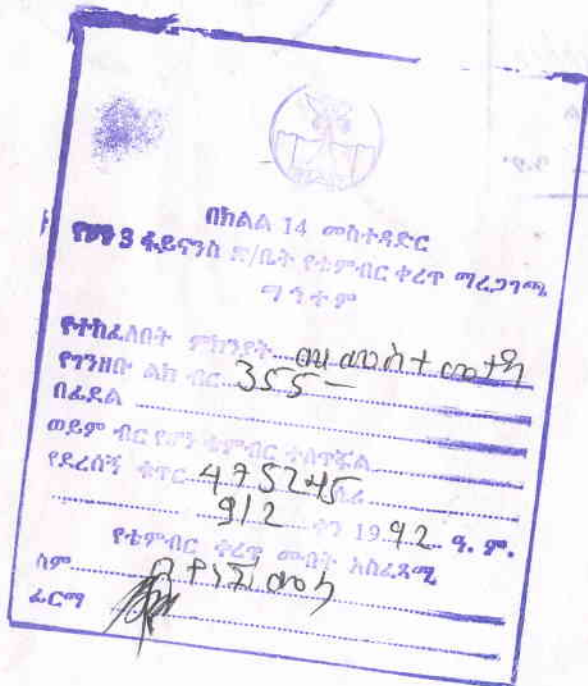 በክልል 14 መስተዳድር
የዞን 3 ፋይናንስ ጽ/ቤት የቴምብር ቀረጥ ማረጋገጫ
ማኅተም
የተከፈለበት ምክንያት
የገንዘቡ ልክ ብር 355 -
በፊደል
ወይም ብር የሆነ ቴምብር ተለጥፏል
የደረሰኝ ቁጥር 475245
9/2 ቀን 1992 ዓ. ም.
የቴምብር ቀረጥ መብት አስፈጻሚ
ስም
ፊርማ